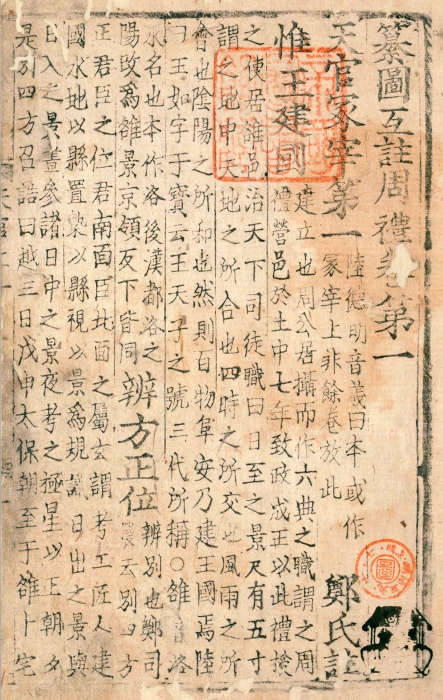 纂圖互註周禮卷第一
天官冢宰第一 陸德明音義曰本或作
冢宰上非餘卷放此 鄭氏註
惟王建國 建立也周公居攝而作六典之職謂之周
禮營邑於土中七年致政成王以此禮授
之使居雒邑治天下司徒職曰日至之景尺有五寸
謂之地中天地之所合也四時之所交也風雨之所
會也陰陽之所和也然則百物阜安乃建王國焉陸
曰王如字于寶云王天子之號三代所稱○雒音洛
水名也本作洛後漢都洛
陽改為雒景京領反下皆同 辨方正位 辨別也鄭司
農云別四方
正君臣之位君南面臣北面之屬玄謂考工匠人建
國水地以縣置槷以縣視以景為規識日出之景與
日入之景晝參諸日中之景夜考之極星以正朝夕
是別四方召誥曰越三日戊申大保朝至于雒卜宅